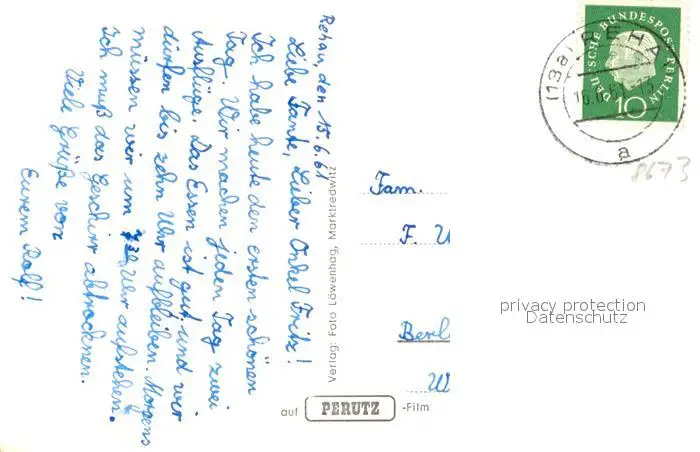 Rehau, den 15.6.61
Liebe Tante, Lieber Onkel Fritz!
Ich habe heute den ersten schönen
Tag. Wir machen jeden Tag zwei
Ausflüge. Das Essen ist gut und wir
dürfen bis zehn Uhr aufbleiben. Morgens
müssen wir um Uhr aufstehen.
Ich muß das Geschirr abtrocknen.
Viele Grüße von
Eurem Rolf!
Verlag: Foto Löwenhag, Marktredwitz
auf PERUTZ -Film
DEUTSCHE BUNDESPOST BERLIN
10
(13a) REHA
16.6.61-15
a
8673
Fam.
F. U
Berl
W
privacy protection
Datenschutz